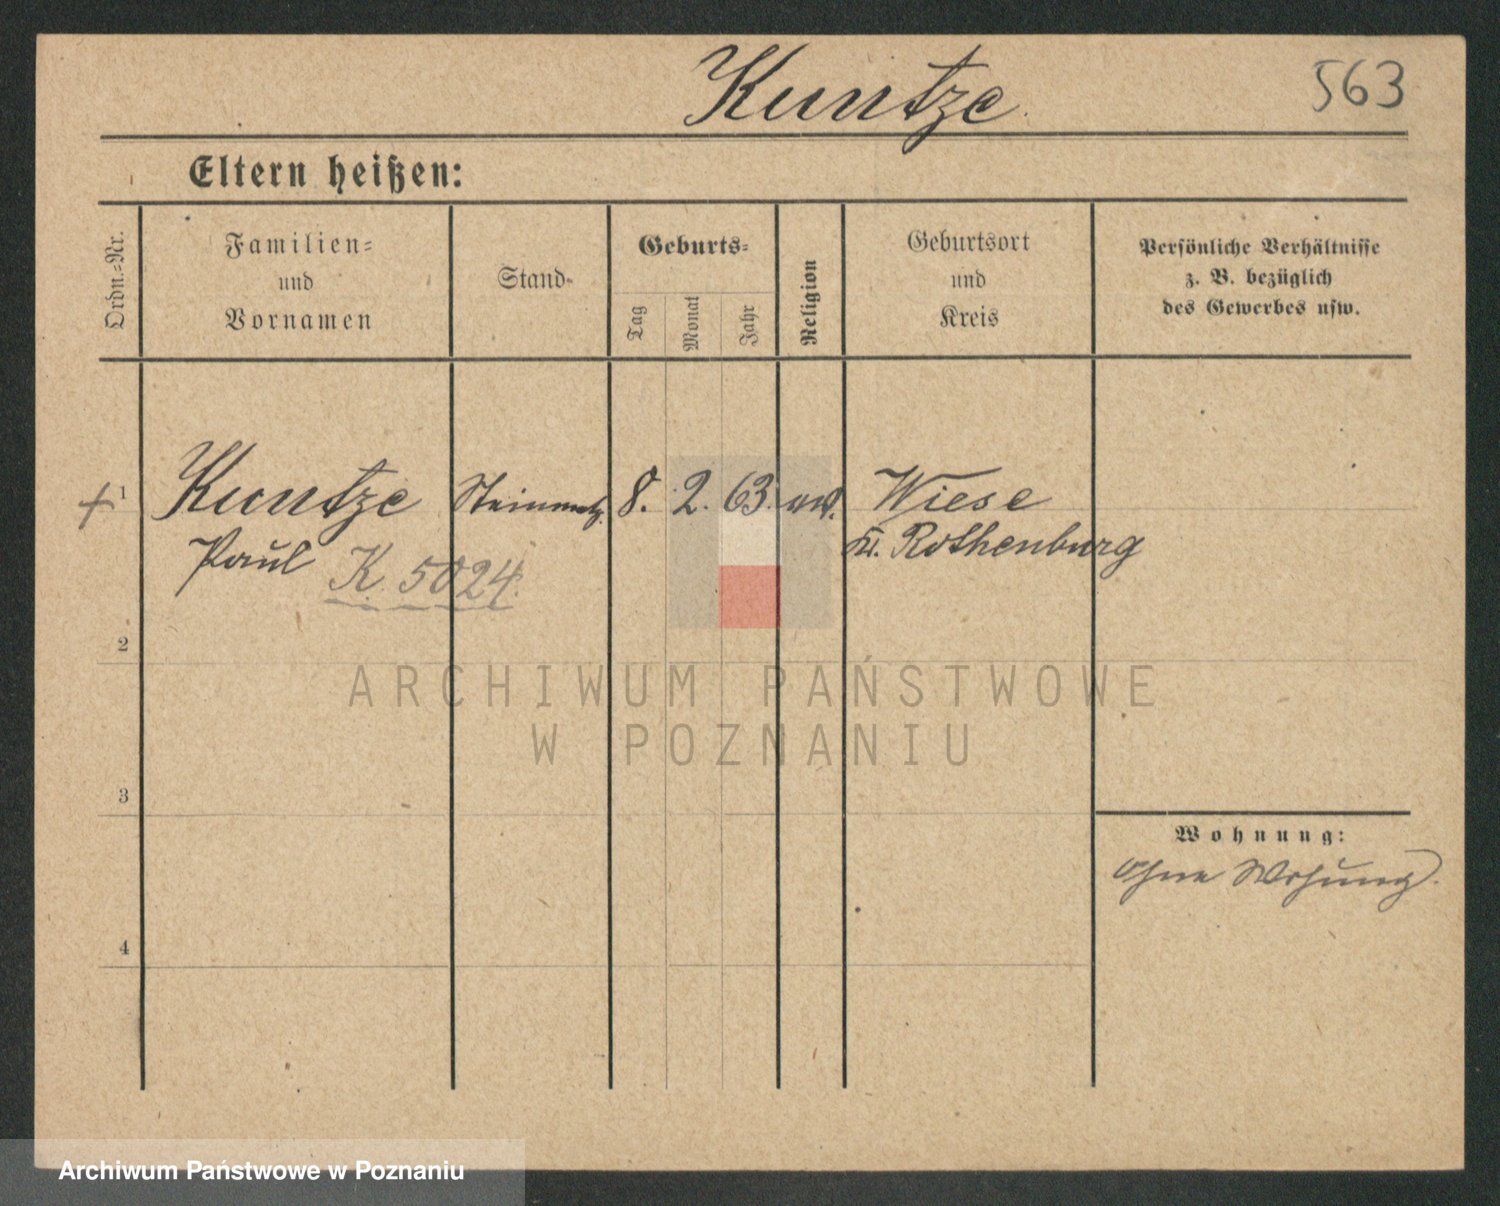 Kuntze
563
Eltern heißen:
Ordn.=Nr.
Familien=
und
Vornamen
Stand
Geburts=
Tag
Monat
Jahr
Religion
Geburtsort
und
Kreis
Persönliche Verhältnisse
z. B. bezüglich
des Gewerbes usw.
+ 1 Kuntze Steinmetz. 8. 2. 63. Wiese
Paul Kr. Rothenburg
K. 5024.
2
3
4
Wohnung:
Ohne Wohung.
ARCHIWUM PAŃSTWOWE
W POZNANIU
Archiwum Państwowe w Poznaniu